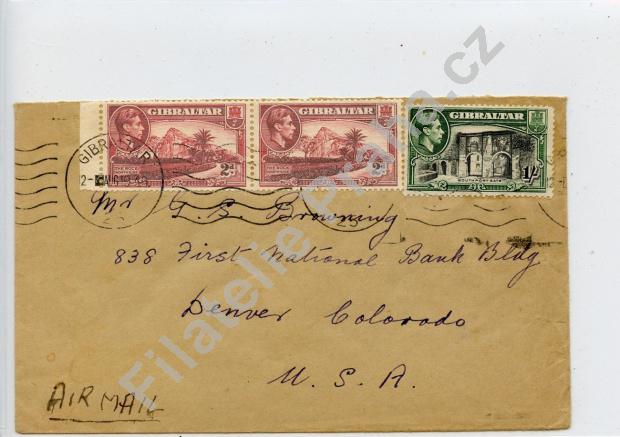 GIBRALTAR
2d
GIBRALTAR
2d
GIBRALTAR
SOUTHPORT GATE
1/-
GIBRALTAR
Mr G. S. Browning
838 First National Bank Bldg
Denver Colorado
U. S. A.
AIR MAIL
Filatelie Praha.cz